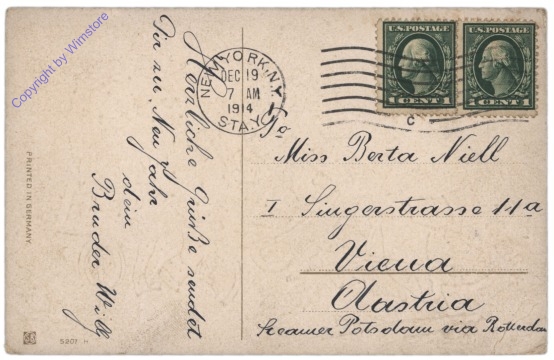 Copyright by Wimstore
Herzliche Grüße sendet
Dir zu Neujahr
dein
Bruder Willy
PRINTED IN GERMANY.
5907 H
NEW YORK, N.Y.
DEC 19
7 AM
1914
STA.
C
U.S. POSTAGE
1 CENT 1
U.S. POSTAGE
1 CENT 1
Miss Berta Niell
I Singerstrasse 11a
Viena
Austria
Steamer Potsdam via Rotterdam